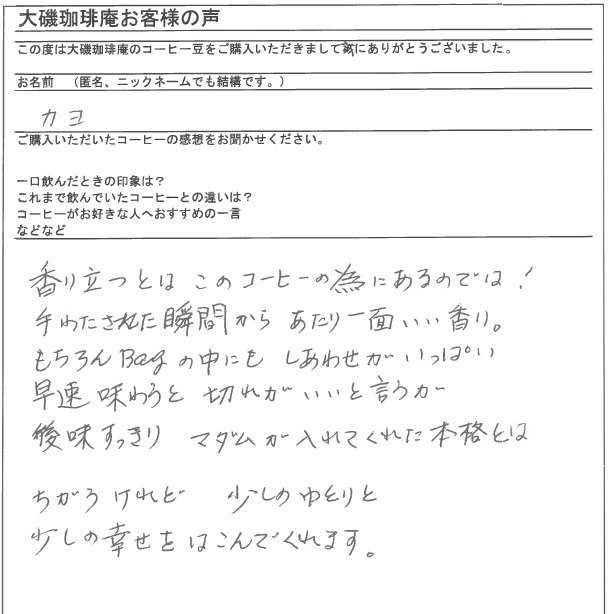 大磯珈琲庵お客様の声
この度は大磯珈琲庵のコーヒー豆をご購入いただきまして誠にありがとうございました。
お名前 （匿名、ニックネームでも結構です。）
カヨ
ご購入いただいたコーヒーの感想をお聞かせください。
一口飲んだときの印象は？
これまで飲んでいたコーヒーとの違いは？
コーヒーがお好きな人へおすすめの一言
などなど
香り立つとは このコーヒーの為にあるのでは！
手わたされた瞬間から あたり一面いい香り。
もちろんBagの中にも しあわせがいっぱい
早速 味わうと 切れがいいと言うか
後味すっきり マダムが入れてくれた本格とは
ちがうけれど 少しのゆとりと
少しの幸せをはこんでくれます。